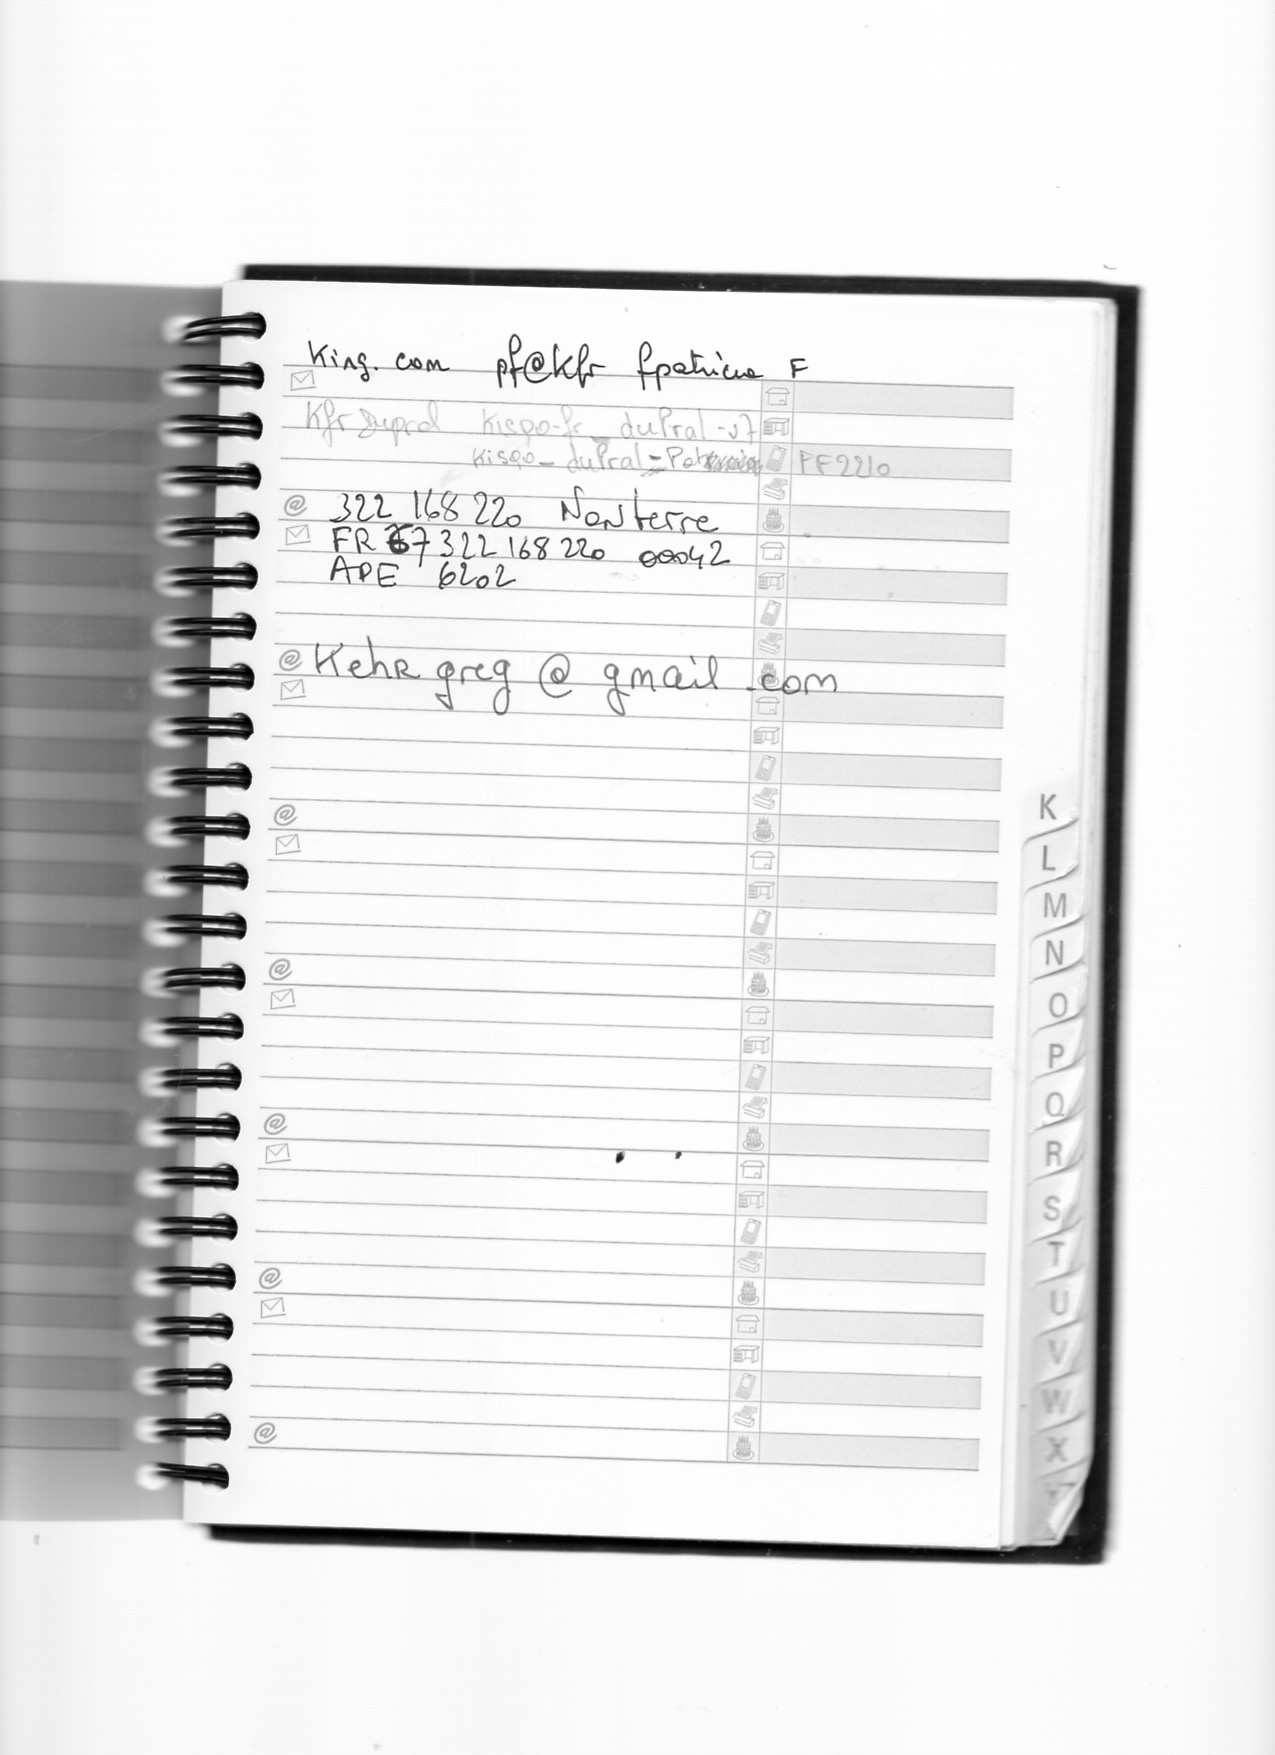 King. com pf@kfr fpatricia F
Kfr Duprol Kisqo-fr_duPral-v7
Kisqo_duPral= PF2210
@ 322 168 220 Nanterre
FR 67 322 168 220 00042
APE 6202
@ Kehr greg @ gmail .com
@
@
@
@
@
K
L
M
N
O
P
Q
R
S
T
U
V
W
X
Y